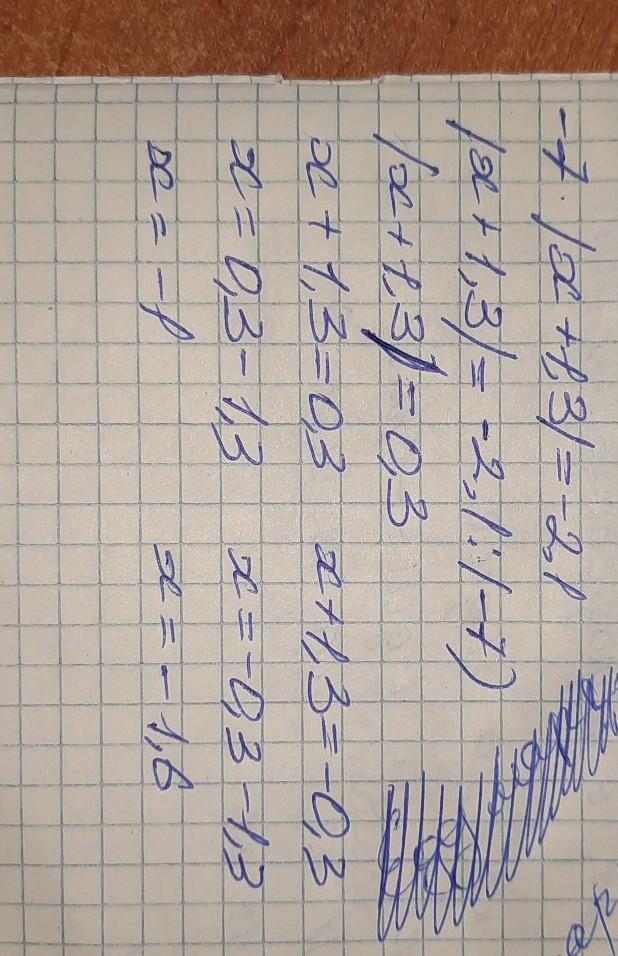 -7·|x+1,3|=-2,1
|x+1,3|=-2,1:(-7)
|x+1,3|=0,3
x+1,3=0,3 x+1,3=-0,3
x=0,3-1,3 x=-0,3-1,3
x=-1 x=-1,6